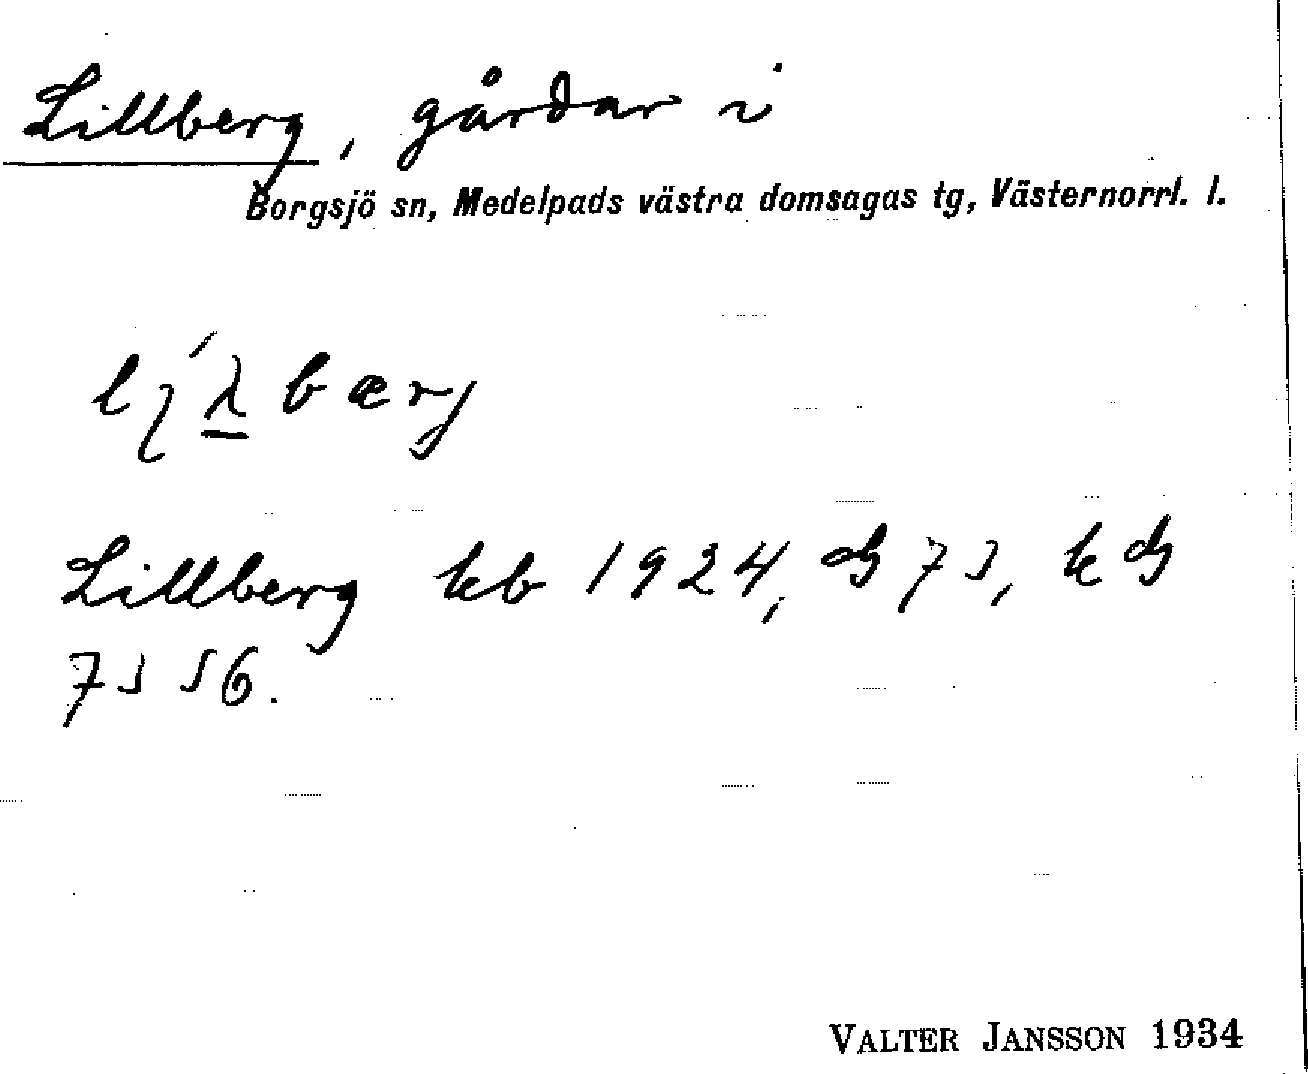 Lillberg, gårdar i
Borgsjö sn, Medelpads västra domsagas tg, Västernorrl. l.
bærj
Lillberg kb 1924,
Valter Jansson 1934